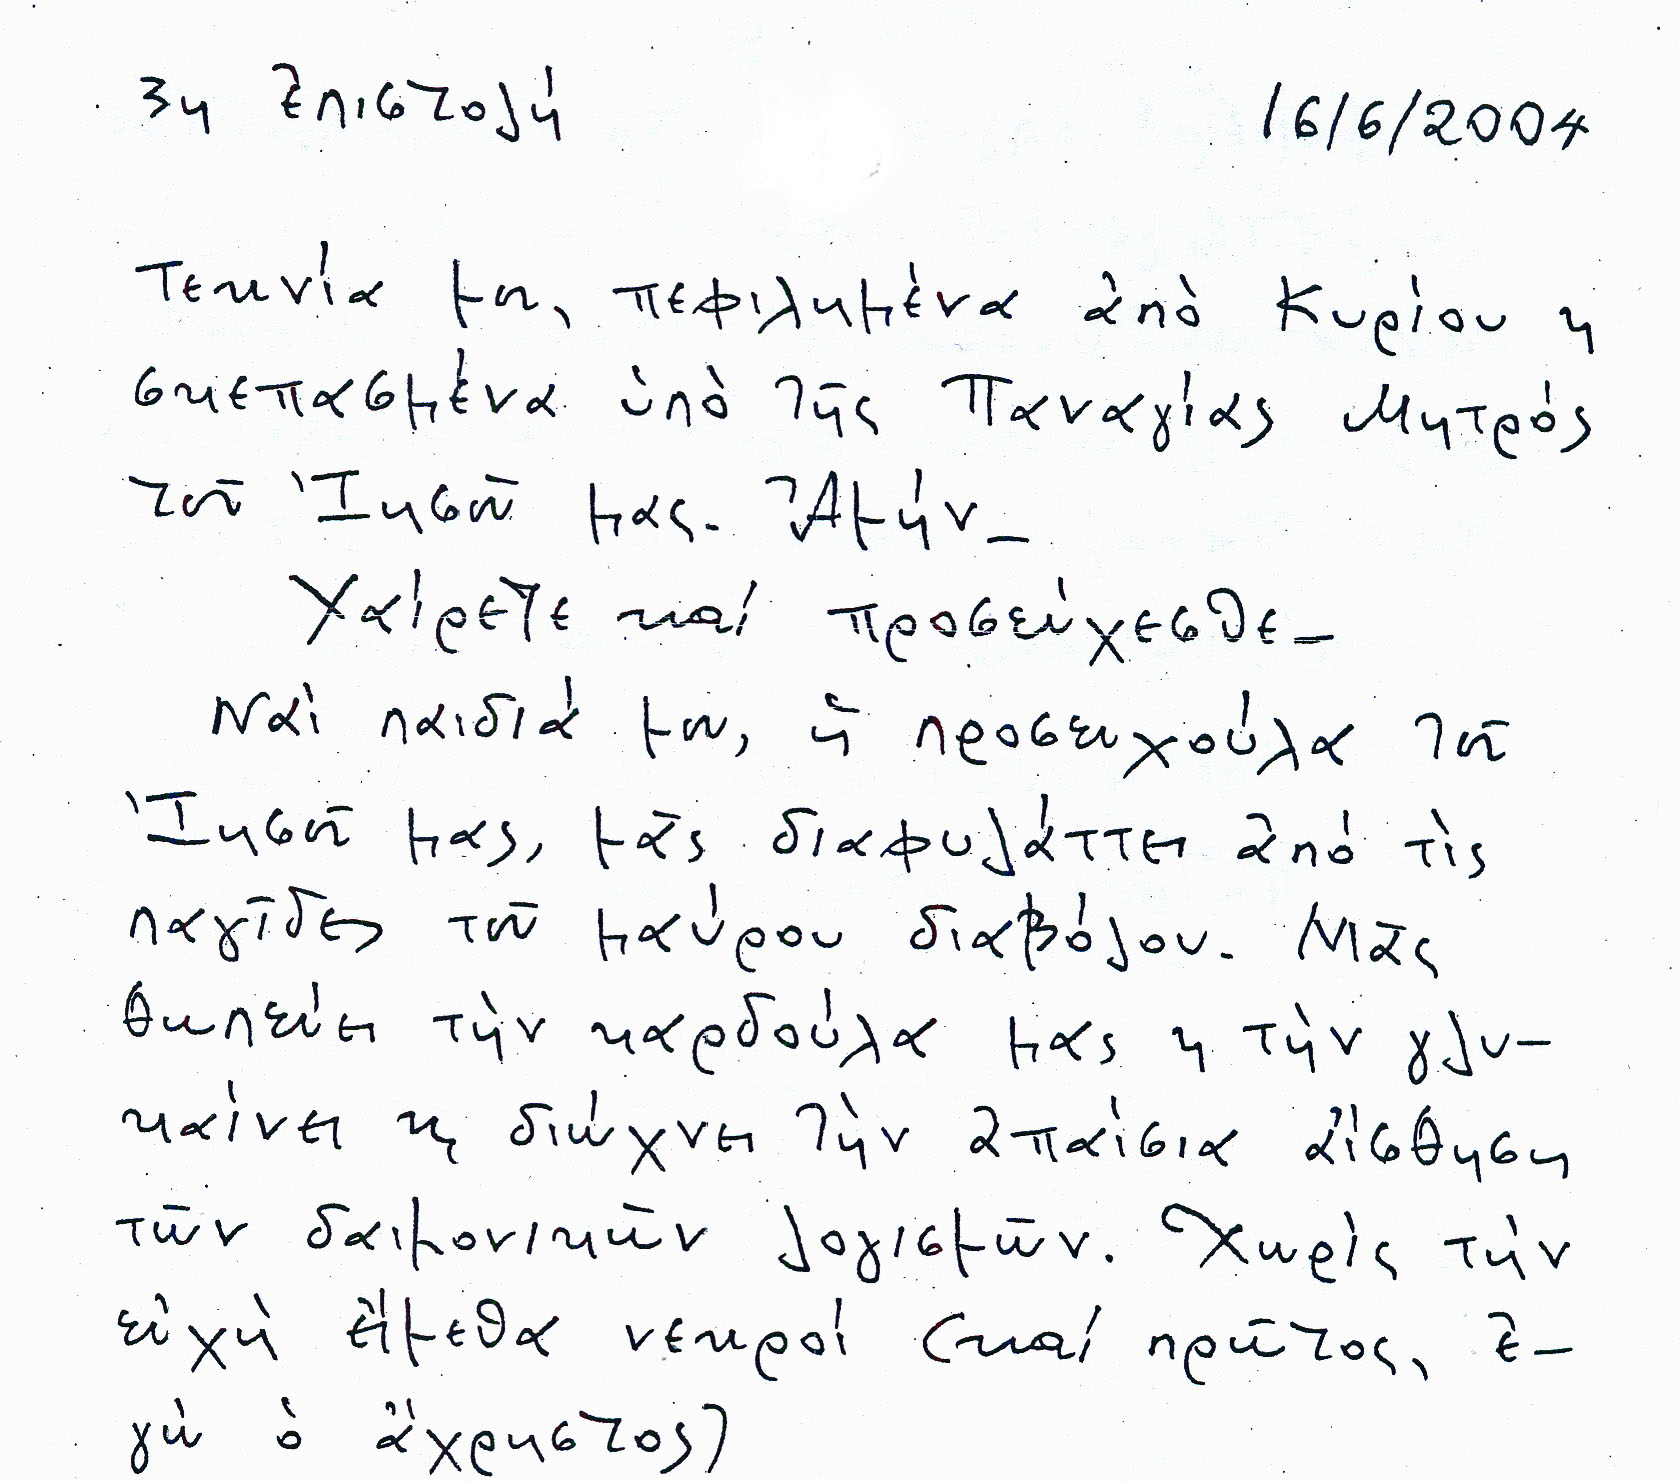 3η ἐπιστολή 16/6/2004
Τεκνία μου, πεφιλημένα ἀπὸ Κυρίου κ
σκεπασμένα ὑπὸ τῆς Παναγίας Μητρός
τοῦ Ἰησοῦ μας. Ἀμήν_
Χαίρετε καί προσεύχεσθε_
Ναὶ παιδιά μου, ἡ προσευχούλα τοῦ
Ἰησοῦ μας, μᾶς διαφυλάττει ἀπό τὶς
παγῖδες τοῦ μαύρου διαβόλου. Μᾶς
θωπεύει τὴν καρδούλα μας κ τὴν γλυ-
καίνει κ διώχνει τὴν ἀπαίσια αἴσθηση
τῶν δαιμονικῶν λογισμῶν. Χωρὶς τὴν
εὐχὴ εἴμεθα νεκροί (καί πρῶτος, ἐ-
γώ ὁ ἄχρηστος)